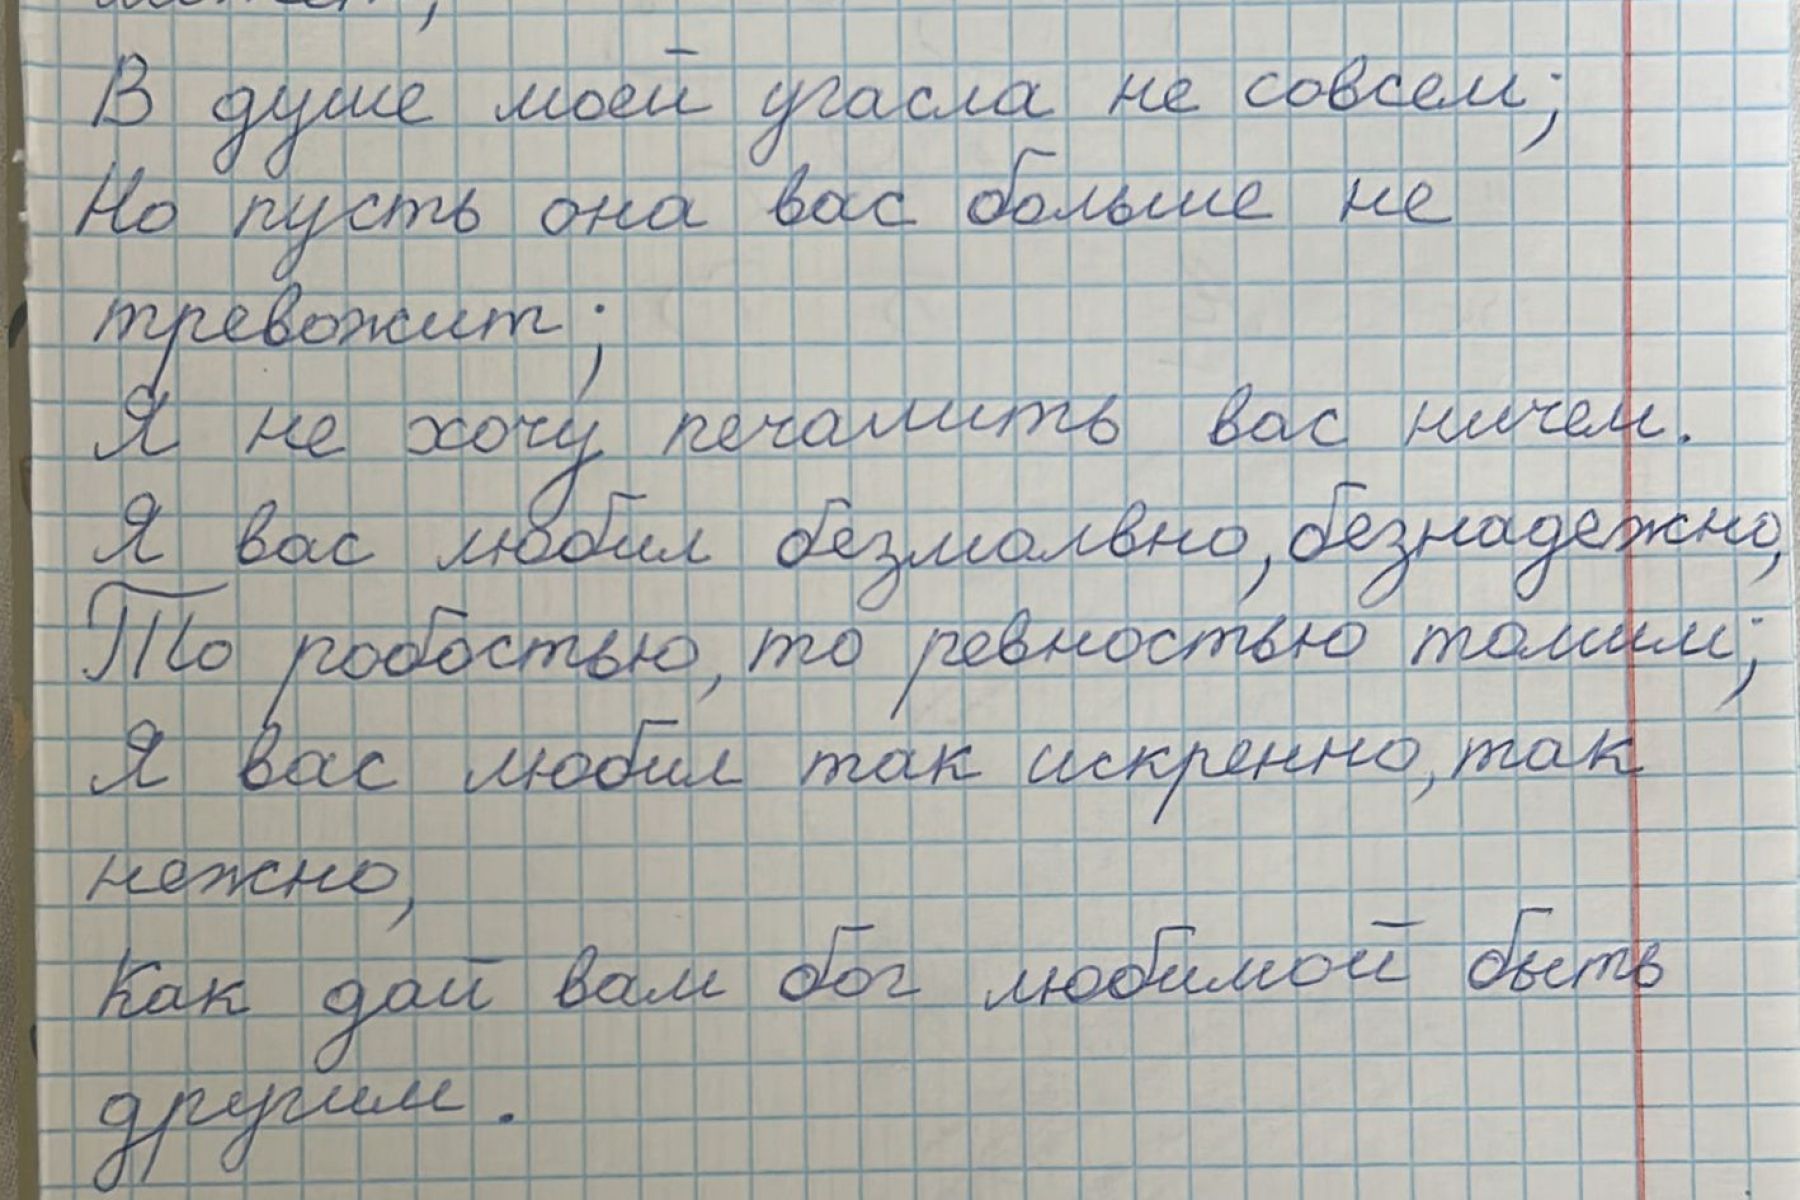 В душе моей угасла не совсем;
Но пусть она вас больше не
тревожит;
Я не хочу печалить вас ничем.
Я вас любил безмолвно, безнадежно,
То робостью, то ревностью томим;
Я вас любил так искренно, так
нежно,
Как дай вам бог любимой быть
другим.